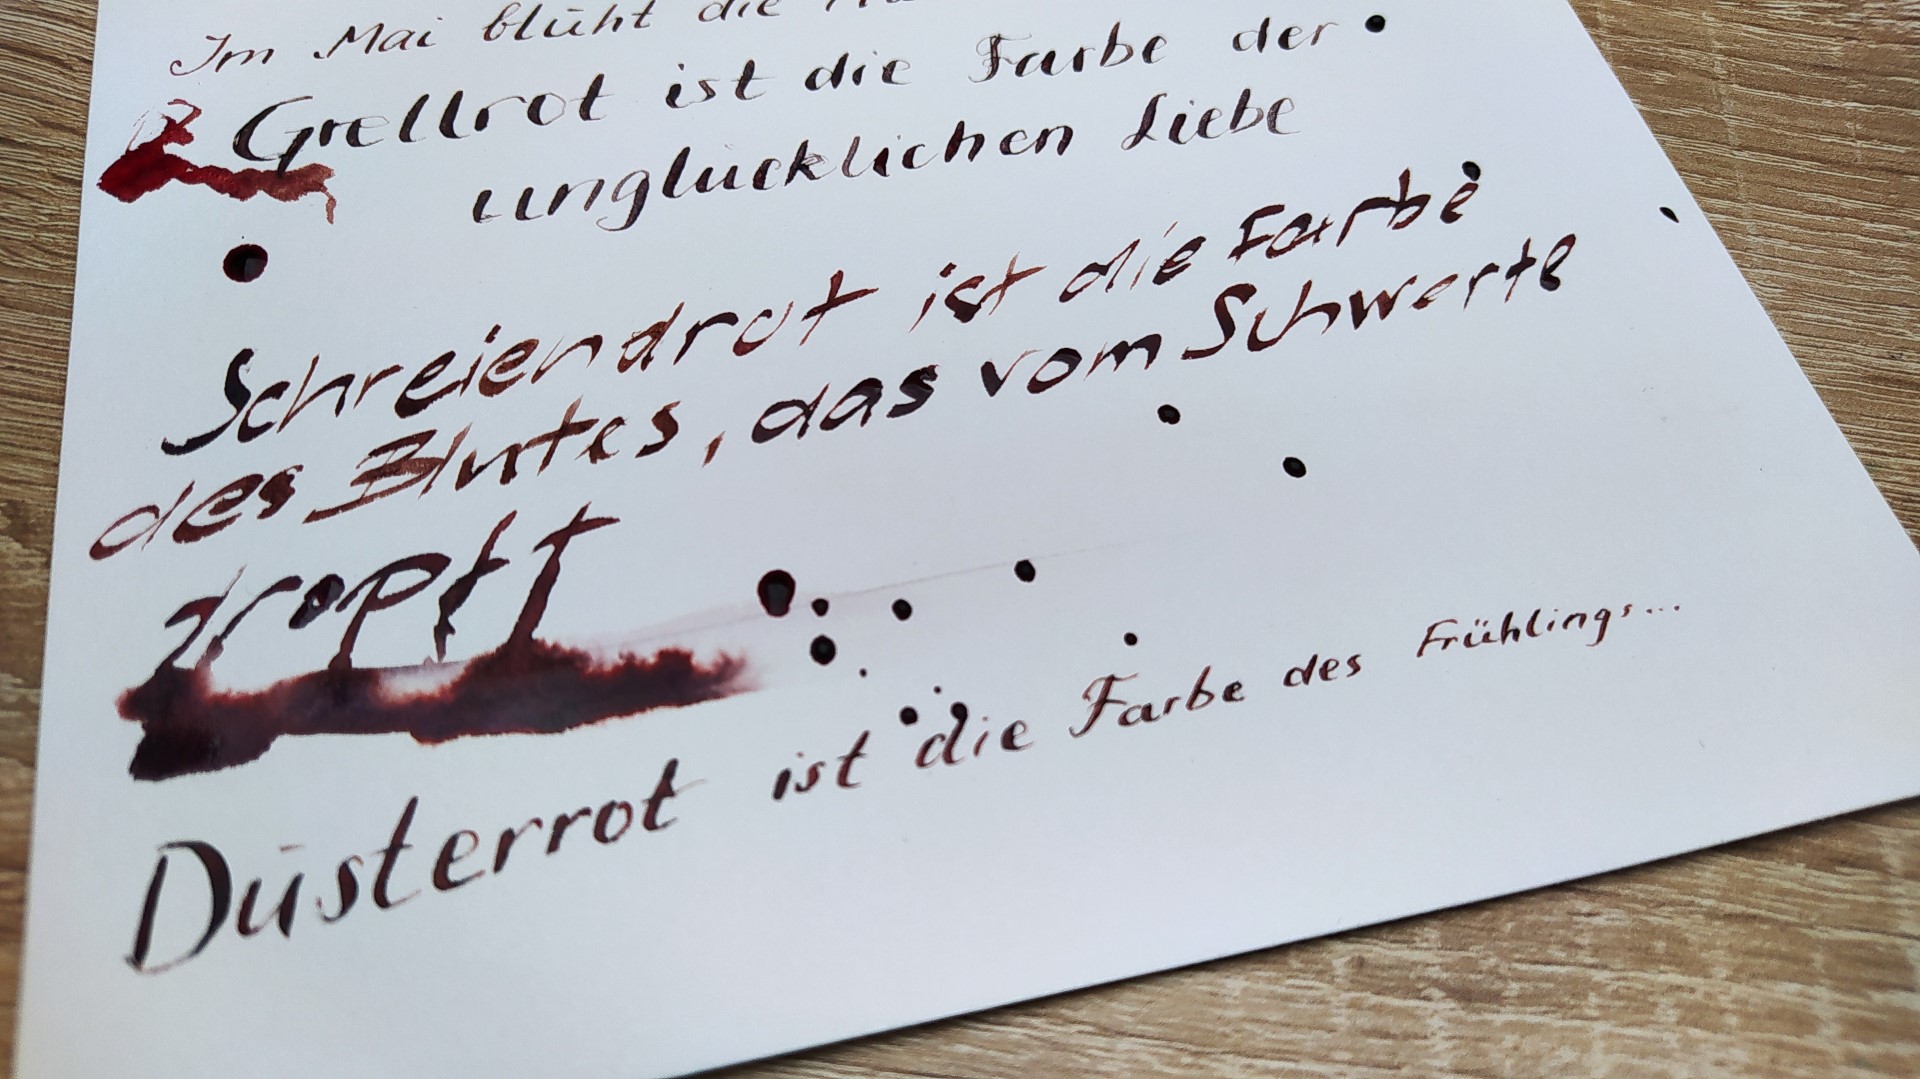 Im Mai blüht die
Grellrot ist die Farbe der
unglücklichen Liebe
Schreiendrot ist die Farbe
des Blutes, das vom Schwerte
tropft
Düsterrot ist die Farbe des Frühlings...